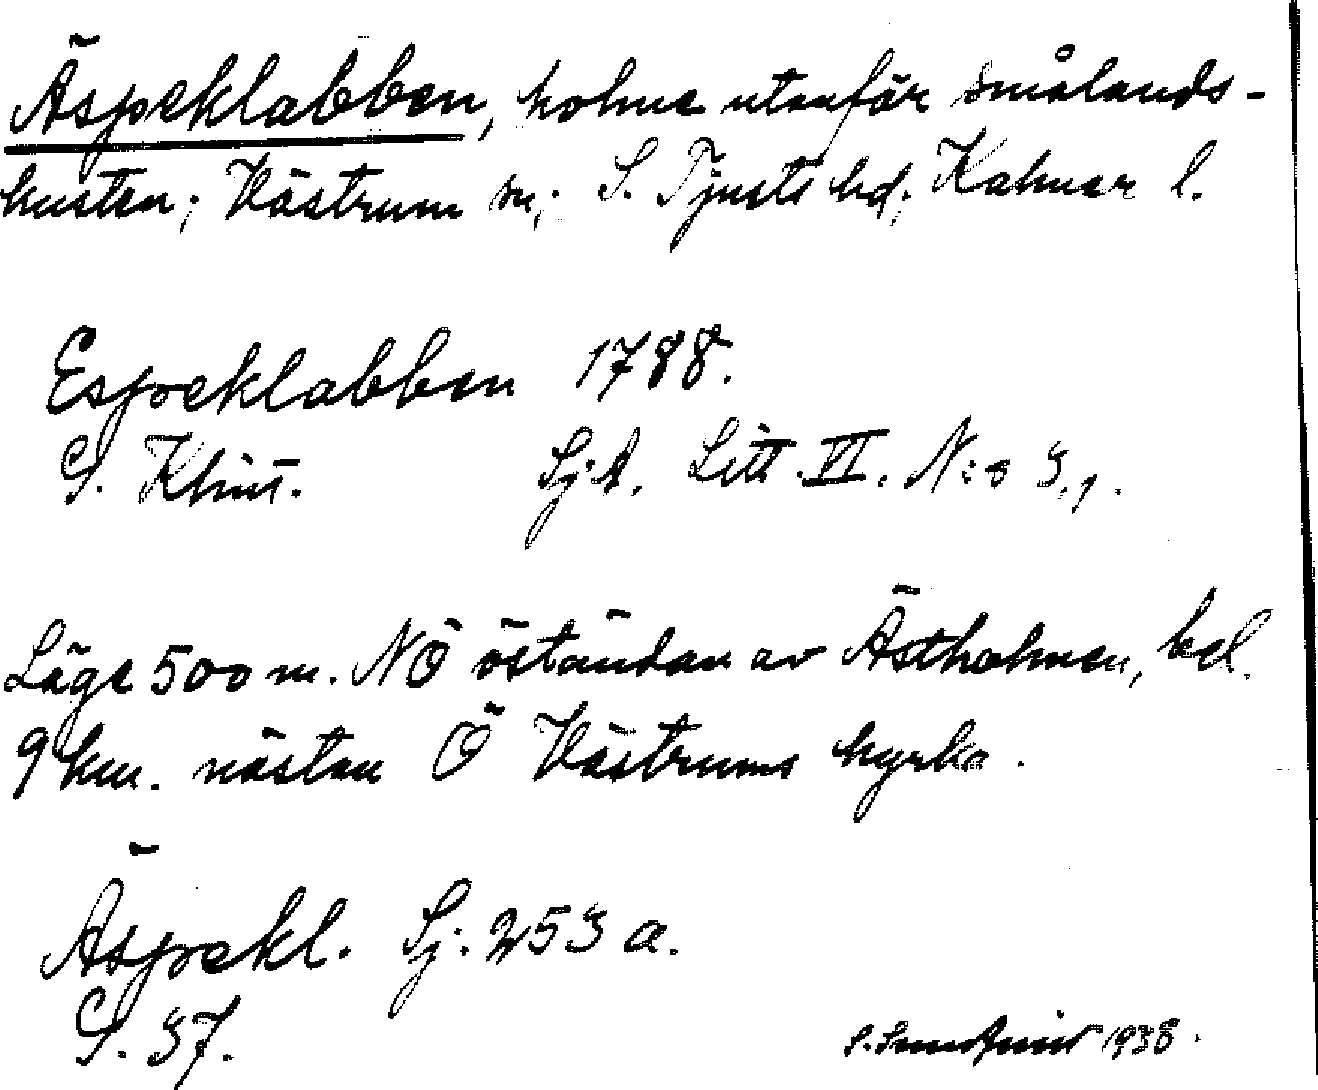 Äspeklabben, holme utanför smålands-
kusten; Västrum sn; S. Tjusts hd; Kalmar l.
Espeklabben 1788.
G. Klint. Sj.A. Litt. VI. N:o 3,1.
Läge 500 m. NÖ östäudan av Ästholmen, bel.
9 km. nästan Ö Västrums kyrka.
Äspekl. Sj. 253 a.
G. 37.
1938.